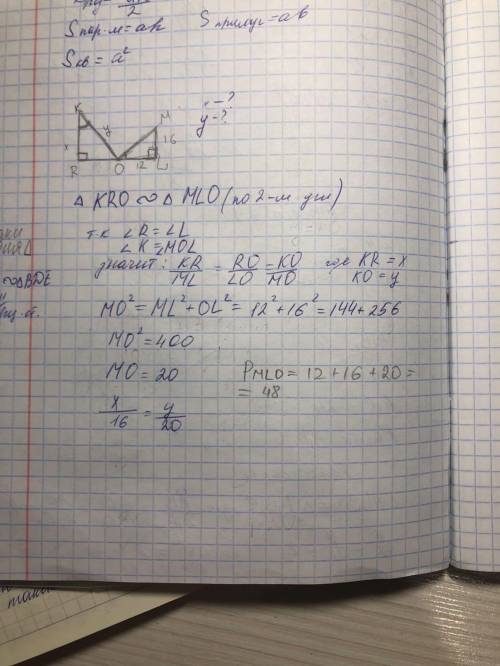 2
S пар-м = ah
S прямуг = ab
S кв = a²
K
M
x - ?
y - ?
y
16
x
R
O
12
L
△ KRO ∾ △ MLO (по 2-м угл)
т.к ∠R = ∠L
∠K = ∠MOL
значит: KR/ML = RO/LO = KO/MO где KR = x
KO = y
MO² = ML² + OL² = 12² + 16² = 144 + 256
MO² = 400
MO = 20
P MLO = 12 + 16 + 20 =
= 48
x/16 = y/20